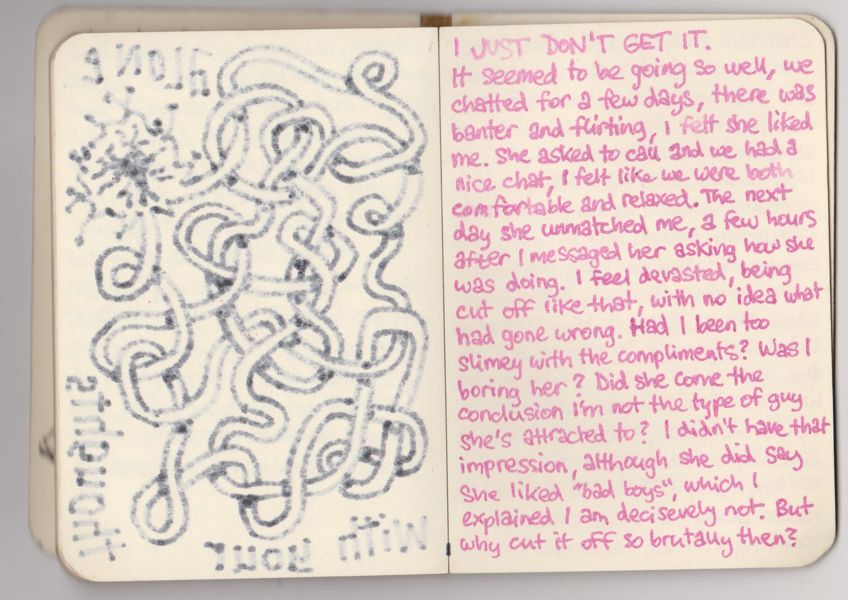 ALONE
With your
thoughts
I JUST DON'T GET IT.
It seemed to be going so well, we
chatted for a few days, there was
banter and flirting, I felt she liked
me. She asked to call and we had a
nice chat, I felt like we were both
comfortable and relaxed. The next
day she unmatched me, a few hours
after I messaged her asking how she
was doing. I feel devasted, being
cut off like that, with no idea what
had gone wrong. Had I been too
slimey with the compliments? Was I
boring her? Did she come the
conclusion I'm not the type of guy
she's attracted to? I didn't have that
impression, although she did say
she liked "bad boys", which I
explained I am decisevely not. But
why cut it off so brutally then?